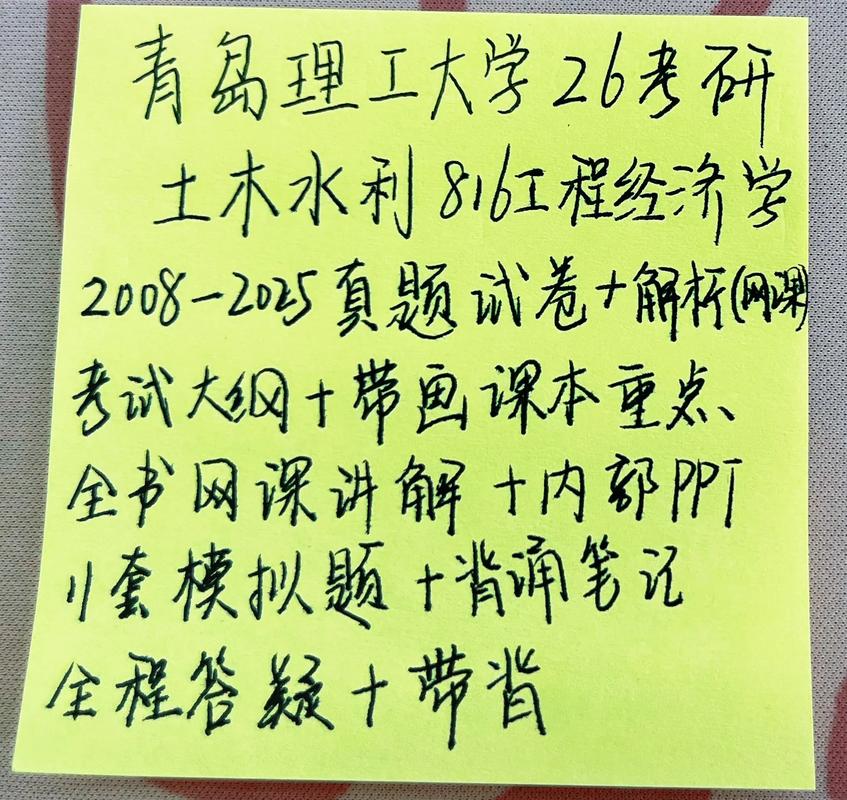 青岛理工大学26考研
土木水利816工程经济学
2008-2025真题试卷+解析(网课)
考试大纲+带画课本重点、
全书网课讲解+内部PPT
11套模拟题+背诵笔记
全程答疑+带背